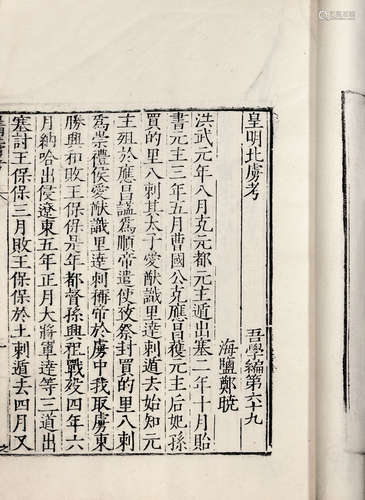 皇明北虜考 吾學編第六十九
海鹽鄭曉
洪武元年八月克元都元主遁出塞二年十月貽
書元主三年五月曹國公克應昌獲元主后妃孫
買的里八剌其太子愛猷識里達剌遁去始知元
主殂於應昌謚爲順帝遣使致祭封買的里八剌
爲崇禮侯愛猷識里達剌稱帝於虜中我取虜東
勝興和敗王保保是年都督孫興祖戰歿四年六
月納哈出侵遼東五年正月大將軍達等三道出
塞討王保保三月敗王保保於土剌遁去四月又